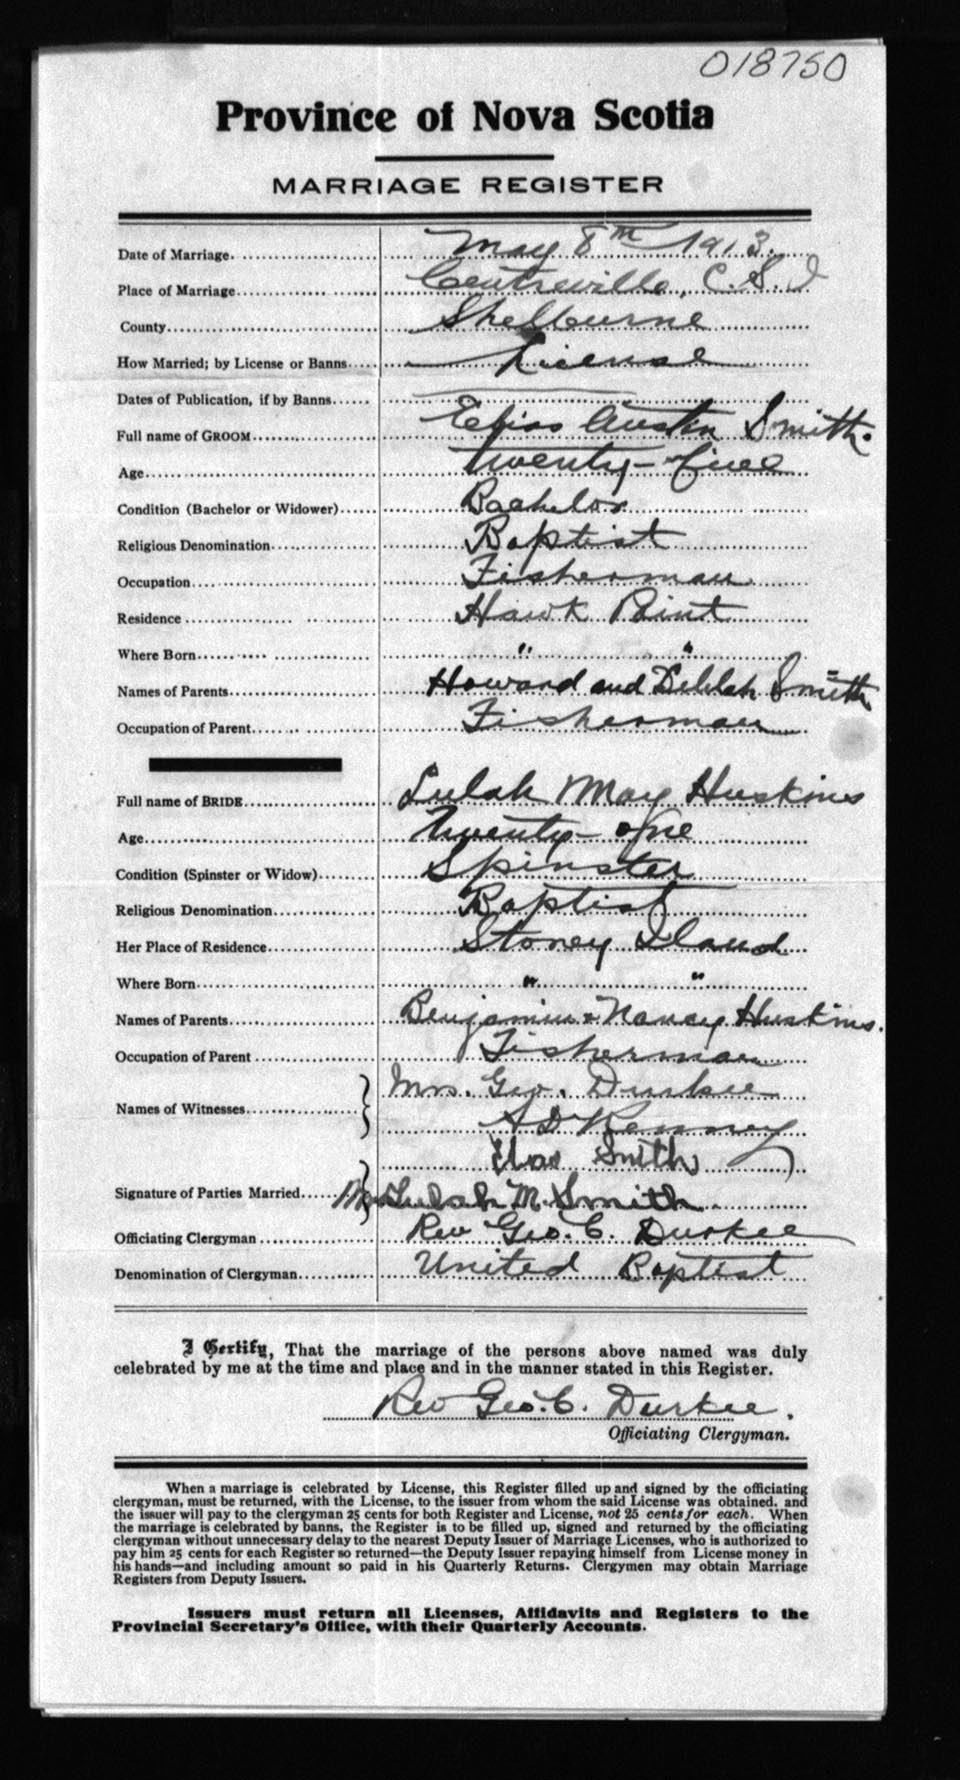 018750
Province of Nova Scotia
MARRIAGE REGISTER
Date of Marriage. May 8th 1913.
Place of Marriage Centreville, C. S. I
County Shelburne
How Married; by License or Banns License
Dates of Publication, if by Banns
Full name of GROOM Austin Smith.
Age twenty-five
Condition (Bachelor or Widower) Bachelor
Religious Denomination Baptist
Occupation Fisherman
Residence Hawk Point
Where Born " "
Names of Parents Howard and Delilah Smith
Occupation of Parent Fisherman
Full name of BRIDE Lulah May Huskins
Age twenty-one
Condition (Spinster or Widow) Spinster
Religious Denomination Baptist
Her Place of Residence Stoney Iland
Where Born " "
Names of Parents Benjamin & Nancy Huskins.
Occupation of Parent Fisherman
Mrs. Geo. Durkee
Names of Witnesses A D Kenney
Smith
Signature of Parties Married Mrs Lulah M. Smith
Officiating Clergyman Rev Geo. C. Durkee
Denomination of Clergyman United Baptist
I Certify, That the marriage of the persons above named was duly
celebrated by me at the time and place and in the manner stated in this Register.
Rev Geo. C. Durkee.
Officiating Clergyman.
When a marriage is celebrated by License, this Register filled up and signed by the officiating
clergyman, must be returned, with the License, to the issuer from whom the said License was obtained, and
the issuer will pay to the clergyman 25 cents for both Register and License, not 25 cents for each. When
the marriage is celebrated by banns, the Register is to be filled up, signed and returned by the officiating
clergyman without unnecessary delay to the nearest Deputy Issuer of Marriage Licenses, who is authorized to
pay him 25 cents for each Register so returned—the Deputy Issuer repaying himself from License money in
his hands—and including amount so paid in his Quarterly Returns. Clergymen may obtain Marriage
Registers from Deputy Issuers.
Issuers must return all Licenses, Affidavits and Registers to the
Provincial Secretary's Office, with their Quarterly Accounts.